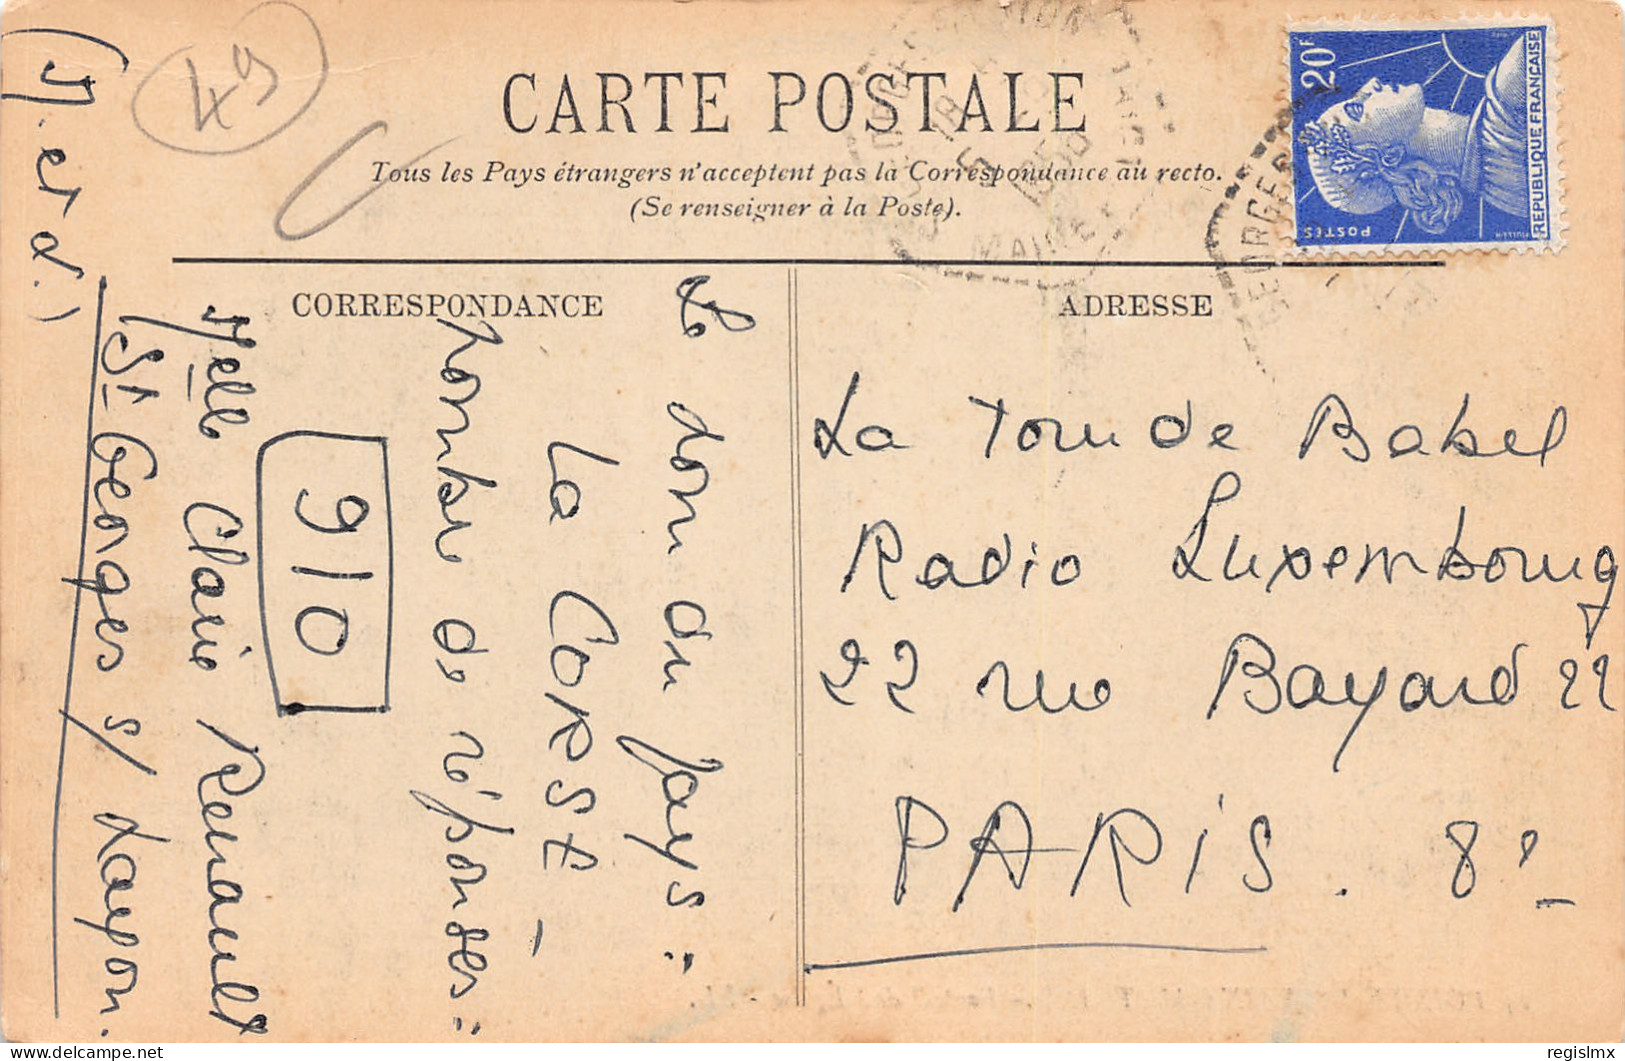 CARTE POSTALE
Tous les Pays étrangers n'acceptent pas la Correspondance au recto.
(Se renseigner à la Poste).
CORRESPONDANCE
ADRESSE
20F
POSTES
REPUBLIQUE FRANÇAISE
MULLER
49
Le don du pays :
La CORSE -
nombre de réponses :
910
Melle Claire Renault
St Georges s/ Layon.
(M. et L.)
La Tour de Babel
Radio Luxembourg
22 rue Bayard 22
PARIS. 8e
GEORGES
MAINE
regislmx